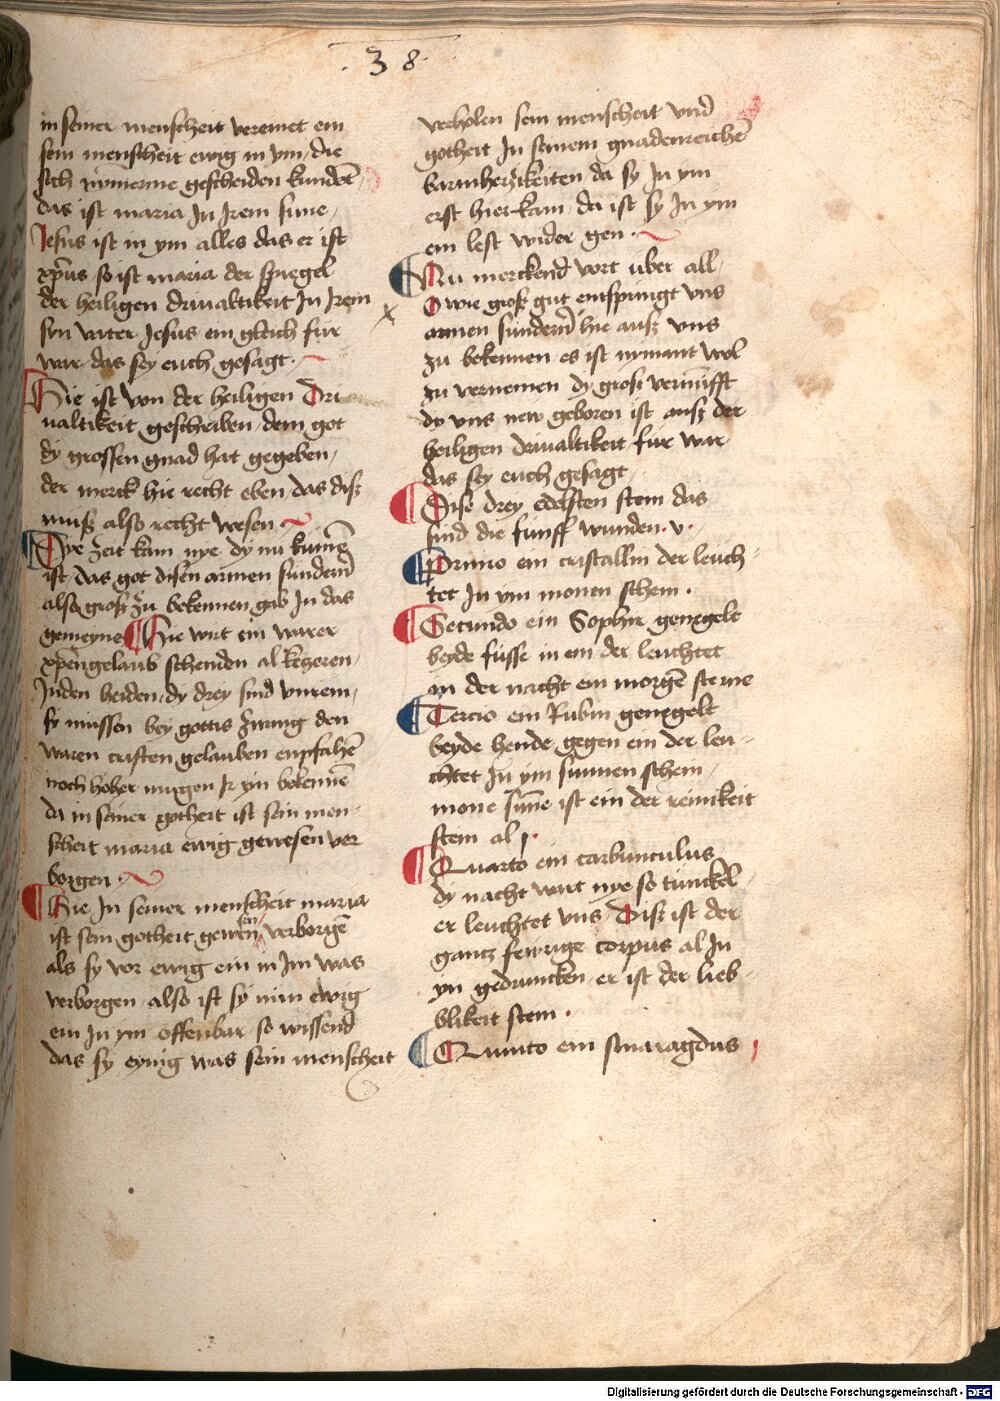 38
in seiner menscheit vereinet ein
sein menscheit ewig in ym / die
sich nymerme gescheiden kundet
das ist maria In Irem sune /
Jesus ist in ym alles das er ist
xp̄us so ist maria der spiegel
der heiligen drivaltikeit In Irem
syn vater Jesus ein gleich fur
war das sey euch gesagt ·
Hie ist von der heiligen Dri
ualtikeit geschriben dem got
dy grossen gnad hat gegeben /
der merck hie recht eben das disz
musz also recht wesen
Dye zeit kam nye dy nu kumē
ist / das got disen armen sundern
also grosz zu bekennen gab In das
gemeyne Hie wirt ein warer
xp̄engelaub schenden al ketzeren /
Juden heiden / dy drey sind vnrein /
sy mussen bey gottis zwing den
waren cristen gelauben enpfahē
noch hoher mugen Ir yn bekennē
da in seiner gotheit ist sein men
scheit maria ewig gewesen ver
borgen ·
Hie In seiner menscheit maria
ist sein gotheit gewesen verborgē
als sy vor ewig ein in Im was
verborgen / also ist sy nun ewig
ein In ym offenbar so wissend
das sy eynig was sein menscheit
verholen sein menscheit vnd
gotheit In seinem gnadenreichē
barmherzikeiten da sy In ym
erst hier kam / da ist sy In ym
ein lest wider gen ·
Nu merckend vort uber all /
O wie grosz gut entspringt vns
armen sundern hie ausz vns
zu bekennen es ist nymant wol
zu vernemen dy grosz vernufft
dy vns new geboren ist ausz der
heiligen drivaltikeit fur war
das sey euch gesagt /
Dise drey edelsten stein das
sind die funff wunden · v ·
Primo ein cristallin der leuch
tet In ym monen schein ·
Secundo ein Saphir genegelt
beyde fusse in ein der leuchtet
in der nacht ein morgē sterne
Tercio ein Rubin genegelt
beyde hende gegen ein der leu
chtet In ym sunnen schein /
mone sūne ist ein der reinikeit
stein al j ·
Quarto ein carbunculus
dy nacht wart nye so tunckel /
er leuchtet vns / Disz ist der
gantz fewrige corpus al In
yn gedruncken er ist der lieb
blikeit stein ·
Quinto ein smaragdus
Digitalisierung gefördert durch die Deutsche Forschungsgemeinschaft - DFG